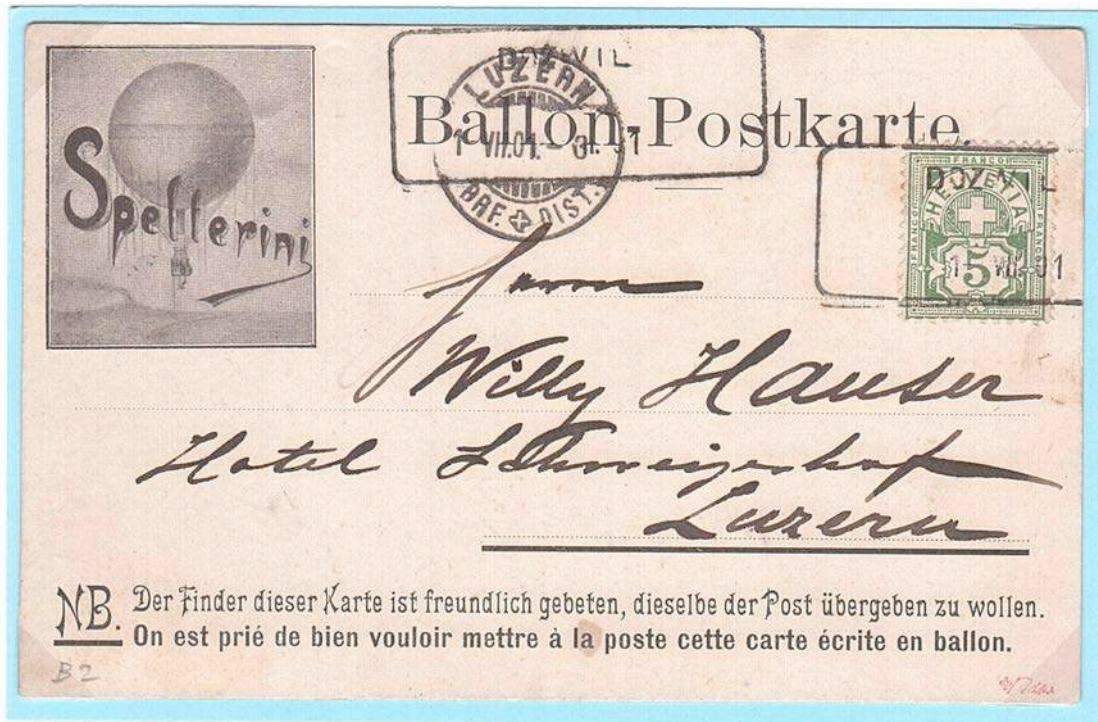 Spelterini
DOZWIL
1 VII. 01
LUZERN
1 VII.01.-
BRF. DIST.
Ballon-Postkarte.
DOZWIL
1 VII. 01
FRANCO
FRANCO
FRANCO
HELVETIA
5
Herrn
Willy Hauser
Hotel Schweizerhof
Luzern
NB. Der Finder dieser Karte ist freundlich gebeten, dieselbe der Post übergeben zu wollen.
On est prié de bien vouloir mettre à la poste cette carte écrite en ballon.
B2